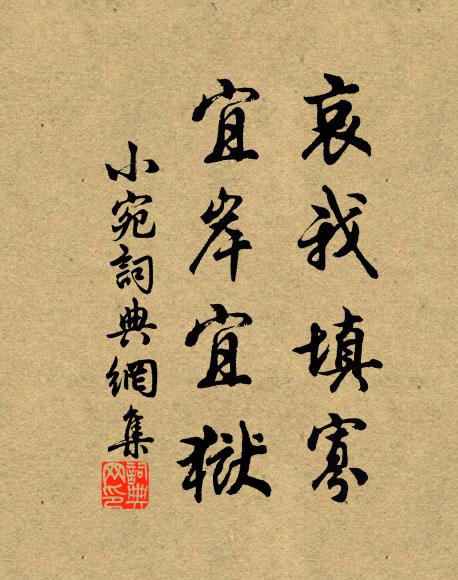 哀我填寡
宜岸宜獄
小宛詞典網集
詞典
网印